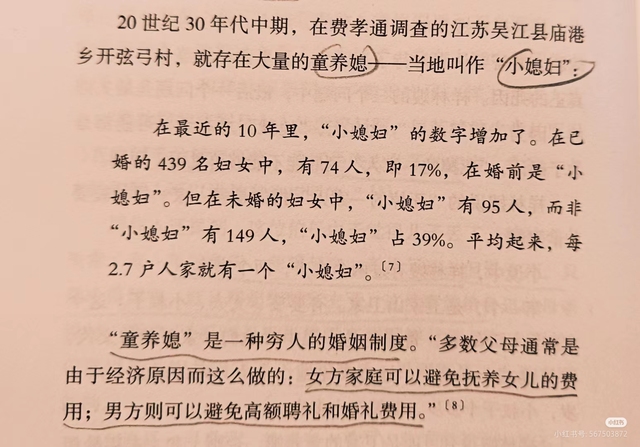 20世纪30年代中期，在费孝通调查的江苏吴江县庙港
乡开弦弓村，就存在大量的童养媳——当地叫作“小媳妇”：
在最近的10年里，“小媳妇”的数字增加了。在已
婚的439名妇女中，有74人，即17%，在婚前是“小
媳妇”。但在未婚的妇女中，“小媳妇”有95人，而非
“小媳妇”有149人，“小媳妇”占39%。平均起来，每
2.7户人家就有一个“小媳妇”。〔7〕
“童养媳”是一种穷人的婚姻制度。“多数父母通常是
由于经济原因而这么做的：女方家庭可以避免抚养女儿的费
用；男方则可以避免高额聘礼和婚礼费用。”〔8〕
小红书